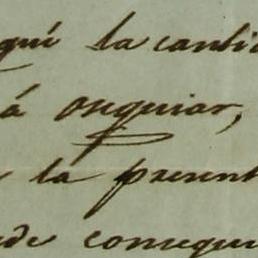 qui la canti
á osequiar,
la present
de consegui